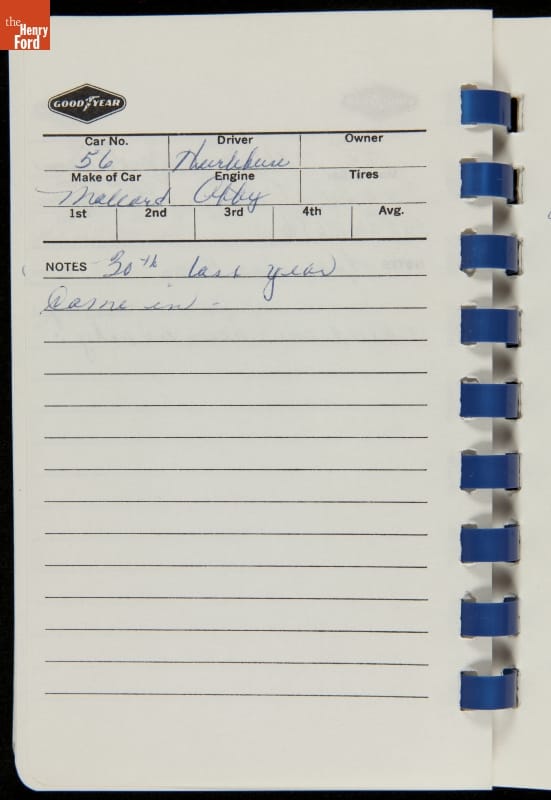 the
Henry
Ford
GOODYEAR
Car No. Driver Owner
56 Hurtubise
Make of Car Engine Tires
Mallard Offy
1st 2nd 3rd 4th Avg.
NOTES 30th last year
Came in -